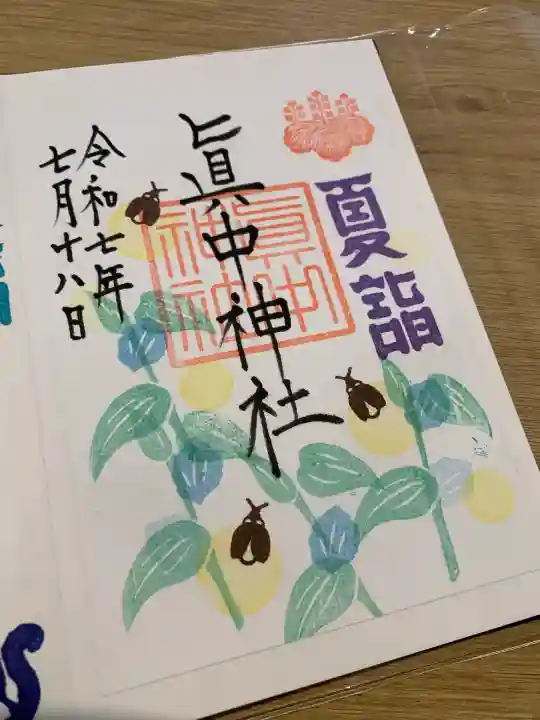 夏詣
眞中神社
令和七年
七月十八日
眞中
神社